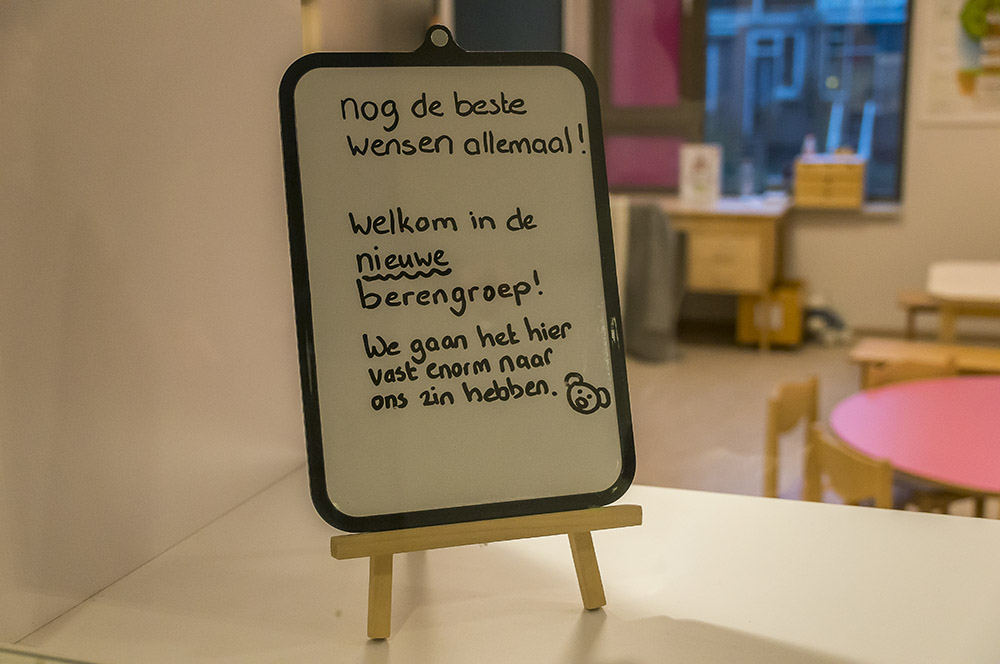 nog de beste
wensen allemaal!
Welkom in de
nieuwe
berengroep!
We gaan het hier
vast enorm naar
ons zin hebben.